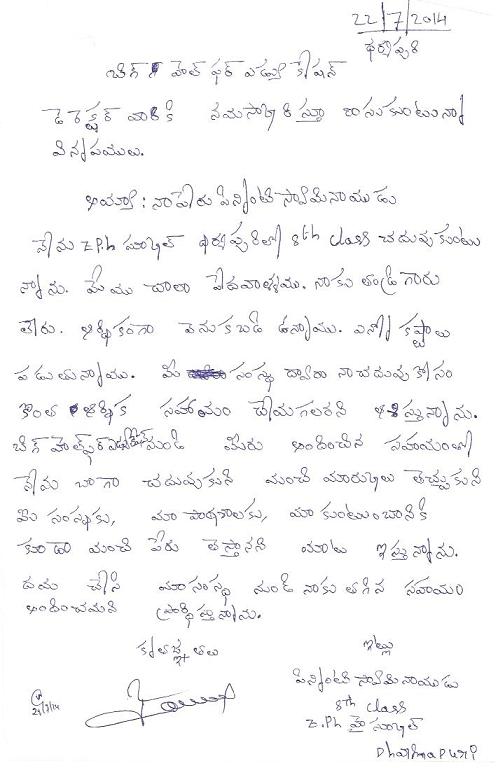 22/7/2014
ధర్మపురి
బిగ్ హెల్ప్ ఫర్ ఎడ్యుకేషన్
డైరెక్టర్ వారికి నమస్కరిస్తూ రాసుకుంటున్న
విన్నపములు.
అయ్యా: నా పేరు పిన్నింటి స్వామినాయుడు
నేను Z.P.h హైస్కూల్ ధర్మపురిలో 8th class చదువుకుంటు
న్నాను. మేము చాలా పేదవాళ్ళము. నాకు తండ్రి గారు
లేరు. ఆర్ధికంగా వెనుకబడి ఉన్నాము. ఎన్నో కష్టాలు
పడుతున్నాము. మీ సంస్థ ద్వారా నా చదువు కోసం
కొంత ఆర్ధిక సహాయం చేయగలరని ఆశిస్తున్నాను.
బిగ్ హెల్ప్ ఫర్ ఎడ్యుకేషన్ నుండి మీరు అందించిన సహాయంతో
నేను బాగా చదువుకుని మంచి మార్కులు తెచ్చుకుని
మీ సంస్థకు, మా పాఠశాలకు, మా కుటుంబానికి
కూడా మంచి పేరు తెస్తానని మాట ఇస్తున్నాను.
దయ చేసి మా సంస్థ నుండి నాకు తగిన సహాయం
అందించమని ప్రార్థిస్తున్నాను.
కృతజ్ఞతలు ఇట్లు
పిన్నింటి స్వామినాయుడు
8th class
Z.Ph హైస్కూల్
Dharmapuri